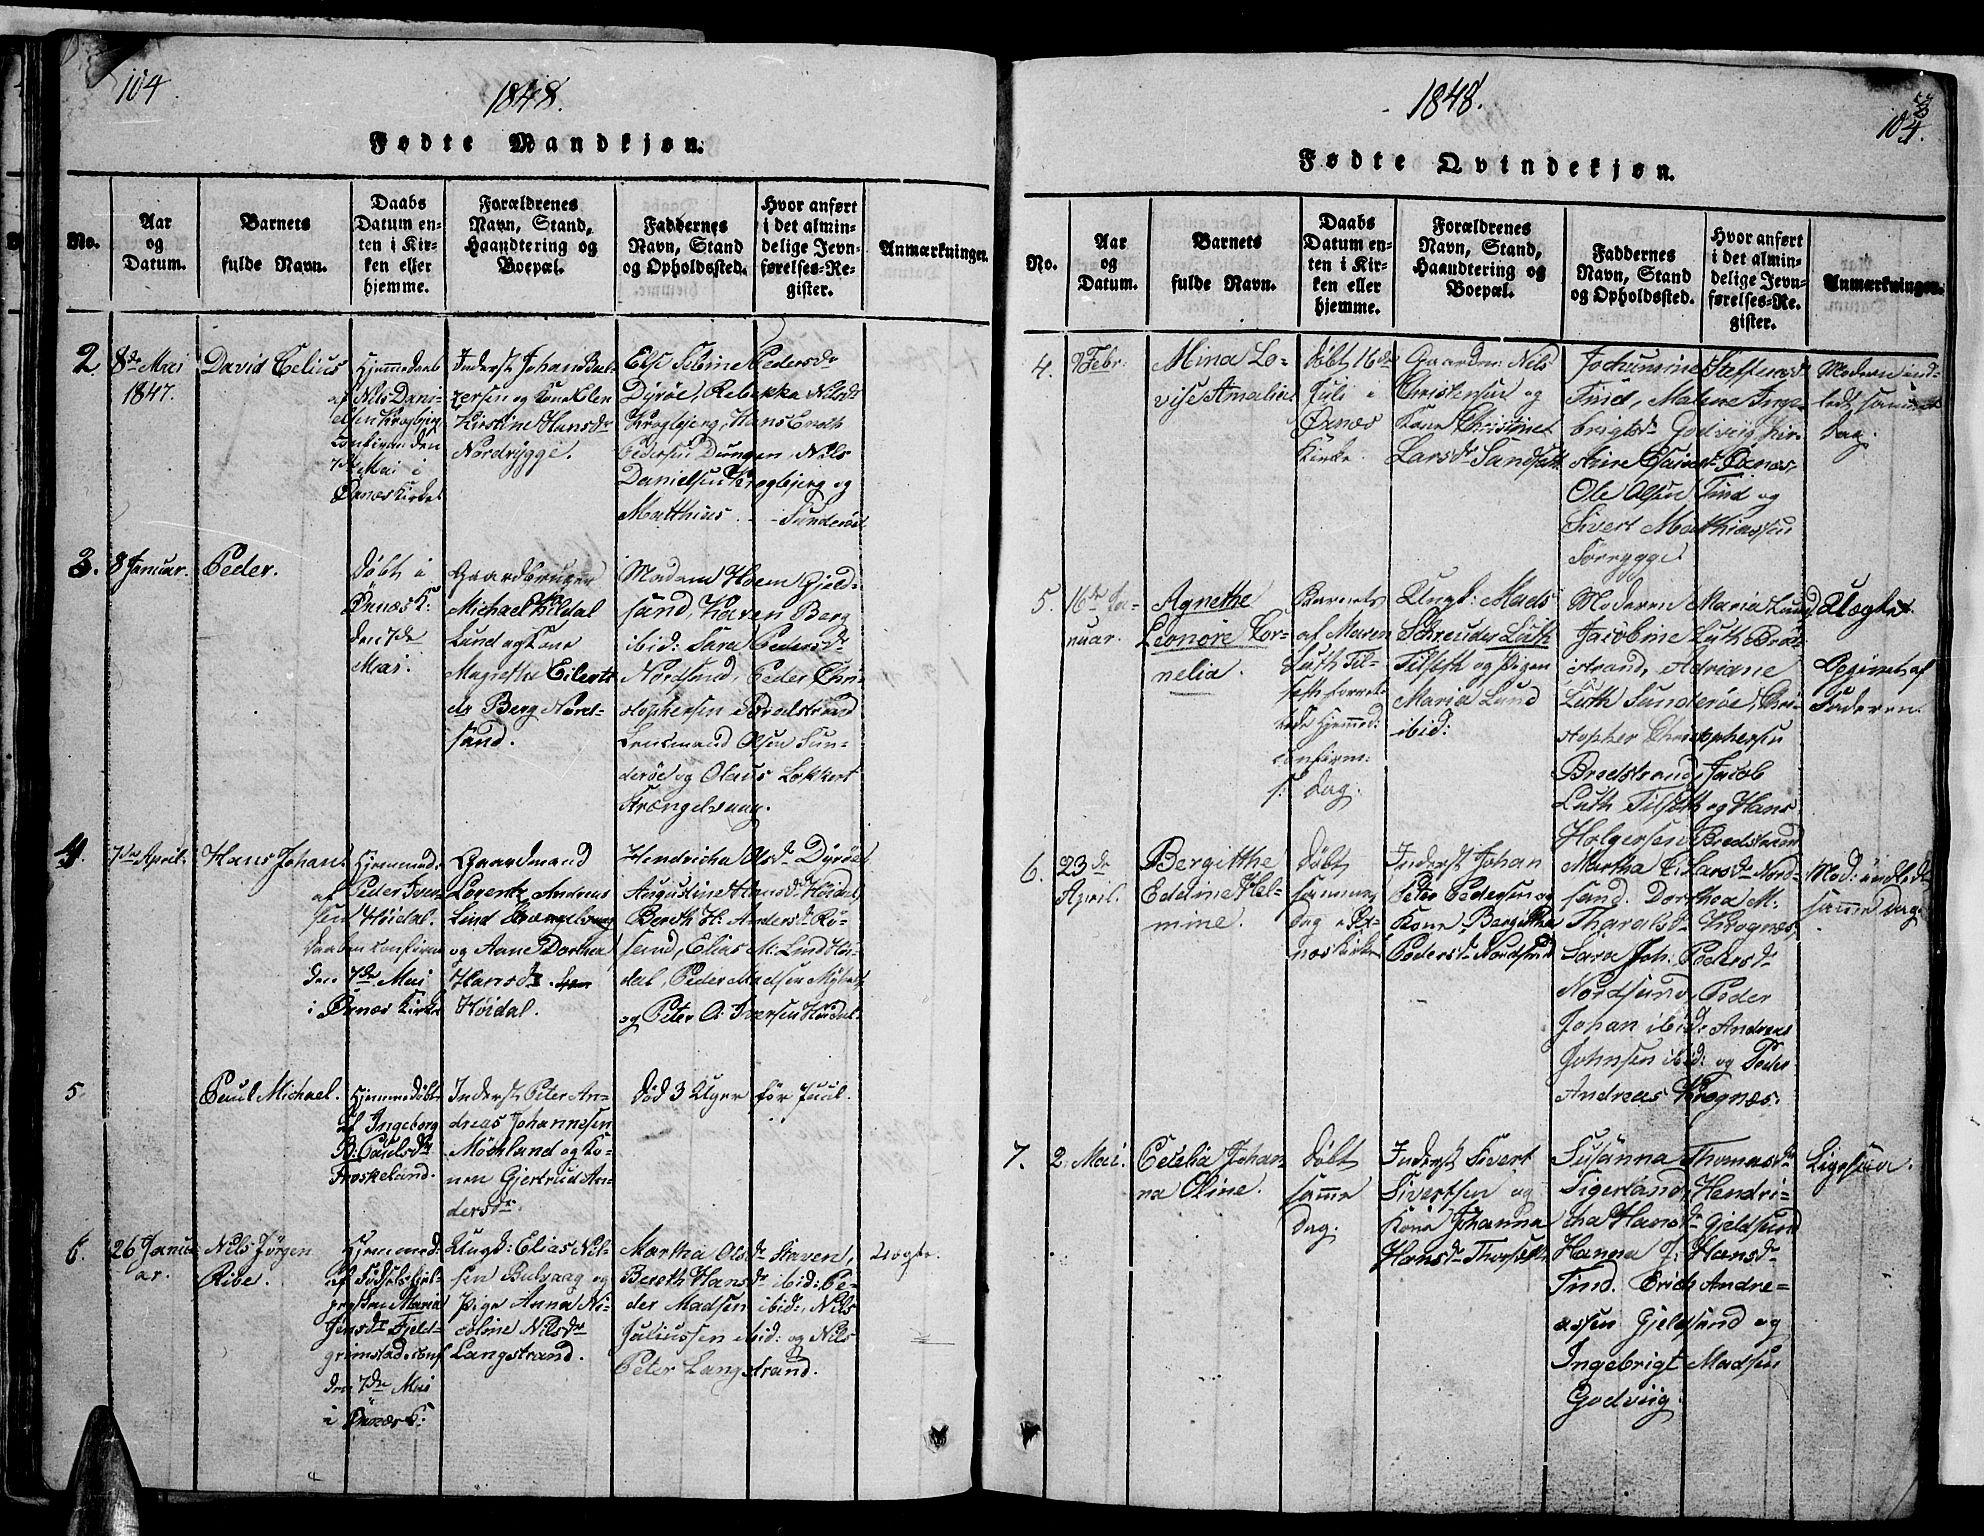 104.
1848.
Fødte Mandkjøn.
No.
Aar
og
Datum.
Barnets
fulde Navn.
Daabs
Datum en-
ten i Kir-
ken eller
hjemme.
Forældrenes
Navn, Stand,
Haandtering og
Boepæl.
Faddernes
Navn, Stand
og Opholdssted.
Hvor anført
i det almin-
delige Jevn-
førelses-Re-
gister.
Anmærkninger.
2.
8de Mai
1847.
David Celius
Hjemmedøbt
af Nils Dani-
elsen Krogbjerg
den
7de Mai i
Øxnæs Kirke
Inderst Johan
og Kone Elen
Kirstine Hansdr
Nordrygge.
Else Sebine Pedersdr
Dyrøe, Rebekka Nilsdr
Krogbjerg, Hans
Pedersen Dyngen, Nils
Danielsen Krogbjerg og
Matthias - - Sunderøe
3.
8 Januar.
Peder.
Døbt i
Øxnæs K:
den 7de
Mai.
Gaardbruger
Michael Kildal
Lund og Kone
Magrethe Eilerts
dr Berg Nord-
sand.
Madam Hoem Gjeld-
sand, Karen Berg
ibid: Sara Pedersdr
Nordsand, Peder Chri-
stophersen Bredstrand
Lensmand Olsen Sun-
derøe og Olaus Lokkert
Strængelvaag.
4.
7de April.
Hans Johan.
Hjemmed:
af Peder Iver-
sen Høidal.
Daaben confirm
den 7de Mai
i Øxnæs Kirke
Gaardmand
Lorentz Andreas
Lind
og Ane Dorthea
Hansdr
Høidal.
Hendricha Olsdr Dyrøe
Augustine Hansdr Høidal
Bereth H: Andersdr
Elias M: Lind Høi-
dal, Peder Madsen
og Peter O: Iversen Høidal.
5.
Paul Michael.
Hjemmedøbt
af Ingeborg
B: Paulsdr
Froskeland.
Inderst Peter An-
dreas Johannesen
Møckland og Ko-
nen Gjertrud An-
dersdr
død 3 Uger før Juul.
6.
26 Janu-
ar.
Nils Jørgen
Ribe.
Hjemmed:
af Fødselshjel-
persken Maria
Jensdr Fjeld-
grimstad. conf
den 7de Mai
i Øxnæs K:
Ungk: Elias Nil-
sen Bulvaag og
Pige Anna Ni-
coline Nilsdr
Langstrand.
Martha Olsdr Staven,
Bereth Hansdr ibid: Pe-
der Madsen ibid:, Nils
Juliussen ibid: og Nils
Peter Langstrand.
Uægte.
1848.
104.
Fødte Qvindekjøn.
No.
Aar
og
Datum.
Barnets
fulde Navn.
Daabs
Datum en-
ten i Kir-
ken eller
hjemme.
Forældrenes
Navn, Stand,
Haandtering og
Boepæl.
Faddernes
Navn, Stand
og Opholdssted.
Hvor anført
i det almin-
delige Jevn-
førelses-Re-
gister.
Anmærkninger.
4.
Febr.
Mina Lo-
vise Amalia
Døbt 16de
Juli i
Øxnæs
Kirke.
Gaardm: Nils
Christensen og
Kone Christine
Larsdr Sandsæth
Jochumine Steffensdr
Tind, Malene Inge-
brigtsdr Godviig
Øxnæs,
Ole Olsen Tind og
Sivert Mathiassen
Sørrygge
Moderen ind-
ledt samme
Dag.
5.
16de Ja-
nuar.
Agnethe
Leonore Cor-
nelia.
Barnets
af Maren
Luth Til-
seth forret-
tede Hjemmed:
confirm:
s: Dag.
Ungk: Mads
Schreuder Luth
Tilseth og Pigen
Maria Lund
ibid:
Moderen Maria Lund,
Jacobine Luth Bred-
strand, Adriane
Luth Sunderøe, Chri-
stopher Christophersen
Bredstrand, Jacob
Luth Tilseth og Hans
Holgersen Bredstrand
Uægte.
Opgivet af
Faderen.
6.
23de
April.
Bergitthe
Edeline Hel-
mine.
Døbt
samme
Dag i Øx-
næs Kirke
Inderst Johan
Peter Pedersen og
Kone Bergitha
Pedersdr Nordsand
Martha E: Larsdr Nord-
sand. Dorthea M:
Tharaldsdr Krognæs,
Sara Joh: Pedersdr
Nordsund, Peder
Johan ibid: Andreas
Johnsen ibid: og Peder
Andreas Krognæs.
Mod: indledt
samme Dag
7.
2. Mai.
Cecelia Johan-
na Oline.
Døbt
samme
Dag.
Inderst Sivert
Sivertsen og
Kone Johanna
Hansdr
Susanna Thomasdr
Tigerland, Hendri-
cha Hansdr Gjeldsand
Hanna J: Hansdr
Tind. Erich Andre-
assen Gjeldsand og
Ingebrigt Madsen
Godviig.
Ligesaa.